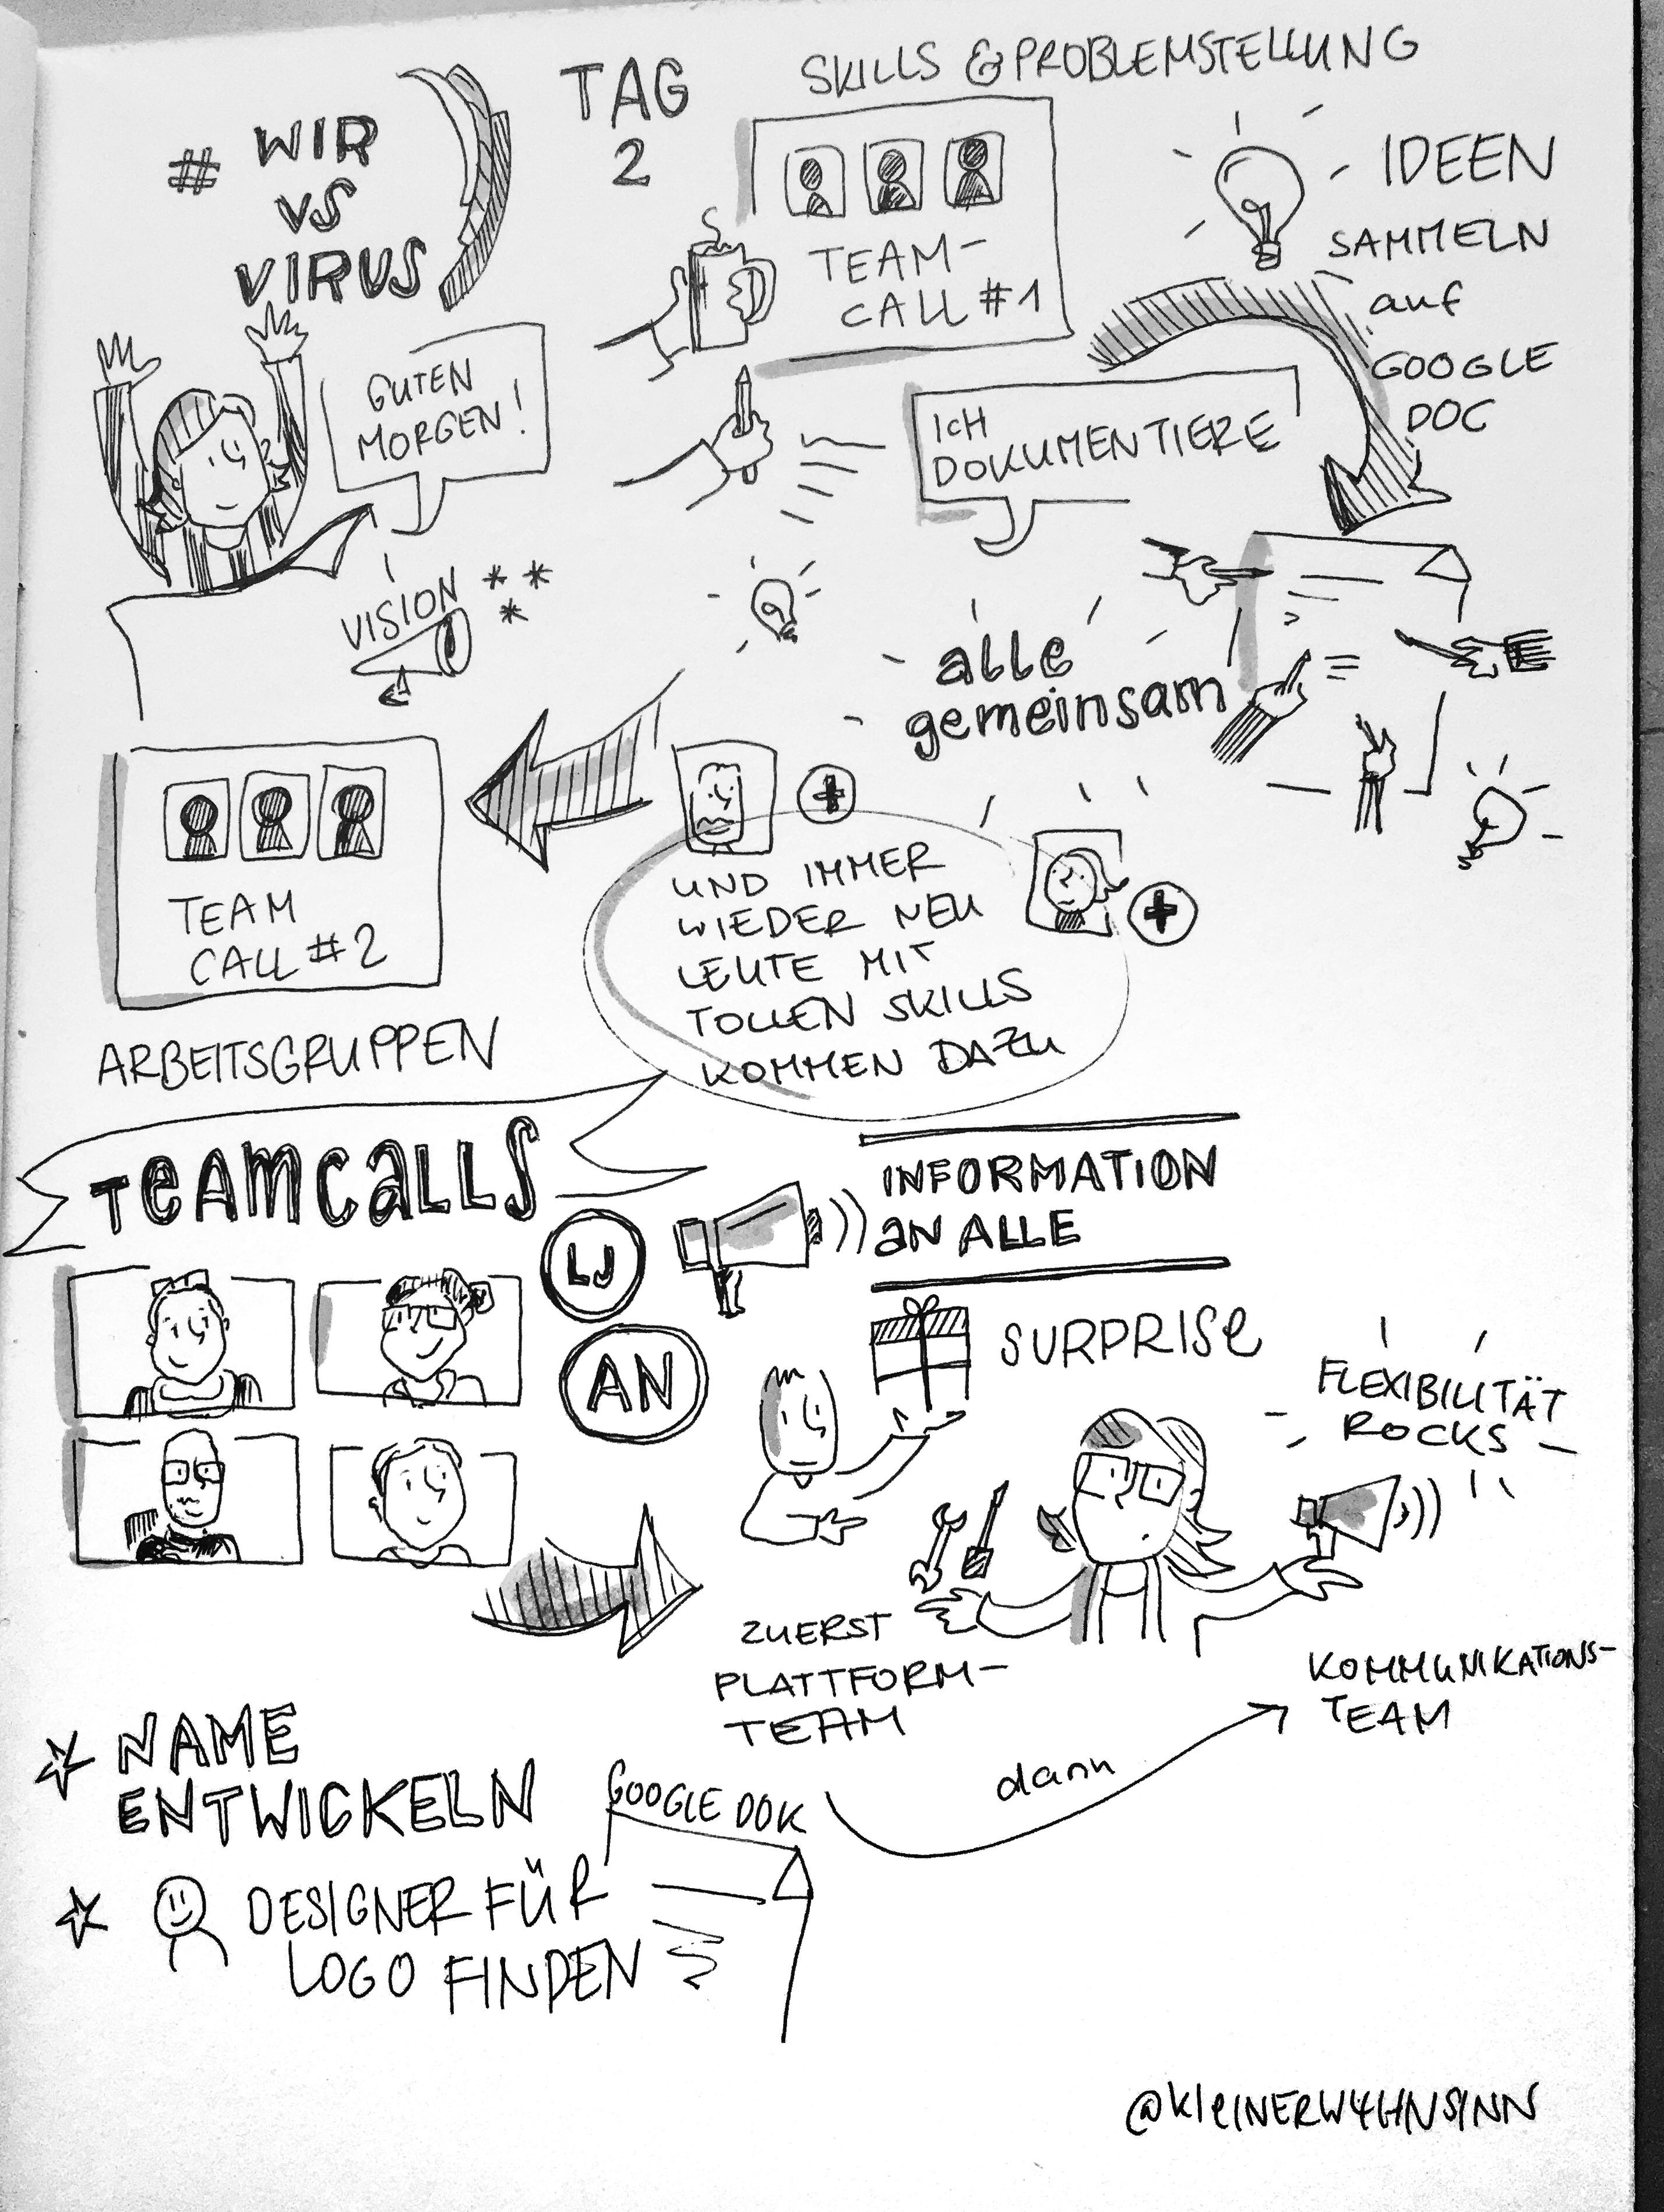 # WIR
VS
VIRUS
TAG
2
SKILLS & PROBLEMSTELLUNG
TEAM-
CALL #1
IDEEN
SAMMELN
auf
GOOGLE
DOC
GUTEN
MORGEN!
ICH
DOKUMENTIERE
VISION
alle
gemeinsam
TEAM
CALL #2
ARBEITSGRUPPEN
UND IMMER
WIEDER NEU
LEUTE MIT
TOLLEN SKILLS
KOMMEN DAZU
TEAMCALLS
LJ
AN
INFORMATION
AN ALLE
SURPRISE
FLEXIBILITÄT
ROCKS
ZUERST
PLATTFORM-
TEAM
dann
KOMMUNIKATIONS-
TEAM
NAME
ENTWICKELN
GOOGLE DOK
DESIGNER FÜR
LOGO FINDEN
@KleINERW4HNSINN